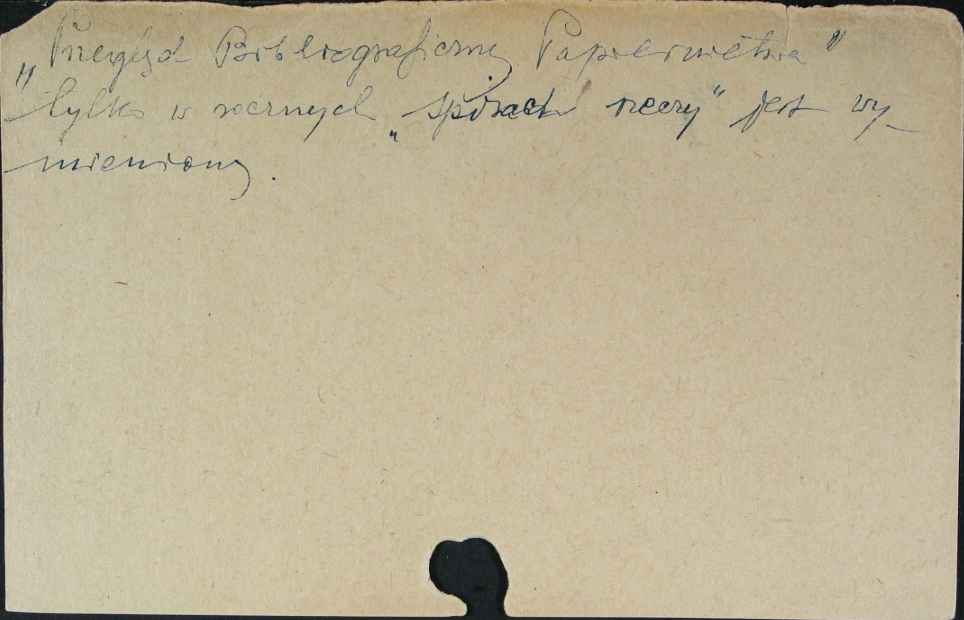 „Przegląd Bibliograficzny Papiernictwa”
tylko w rocznych „spisach rzeczy” jest wy-
mieniony.